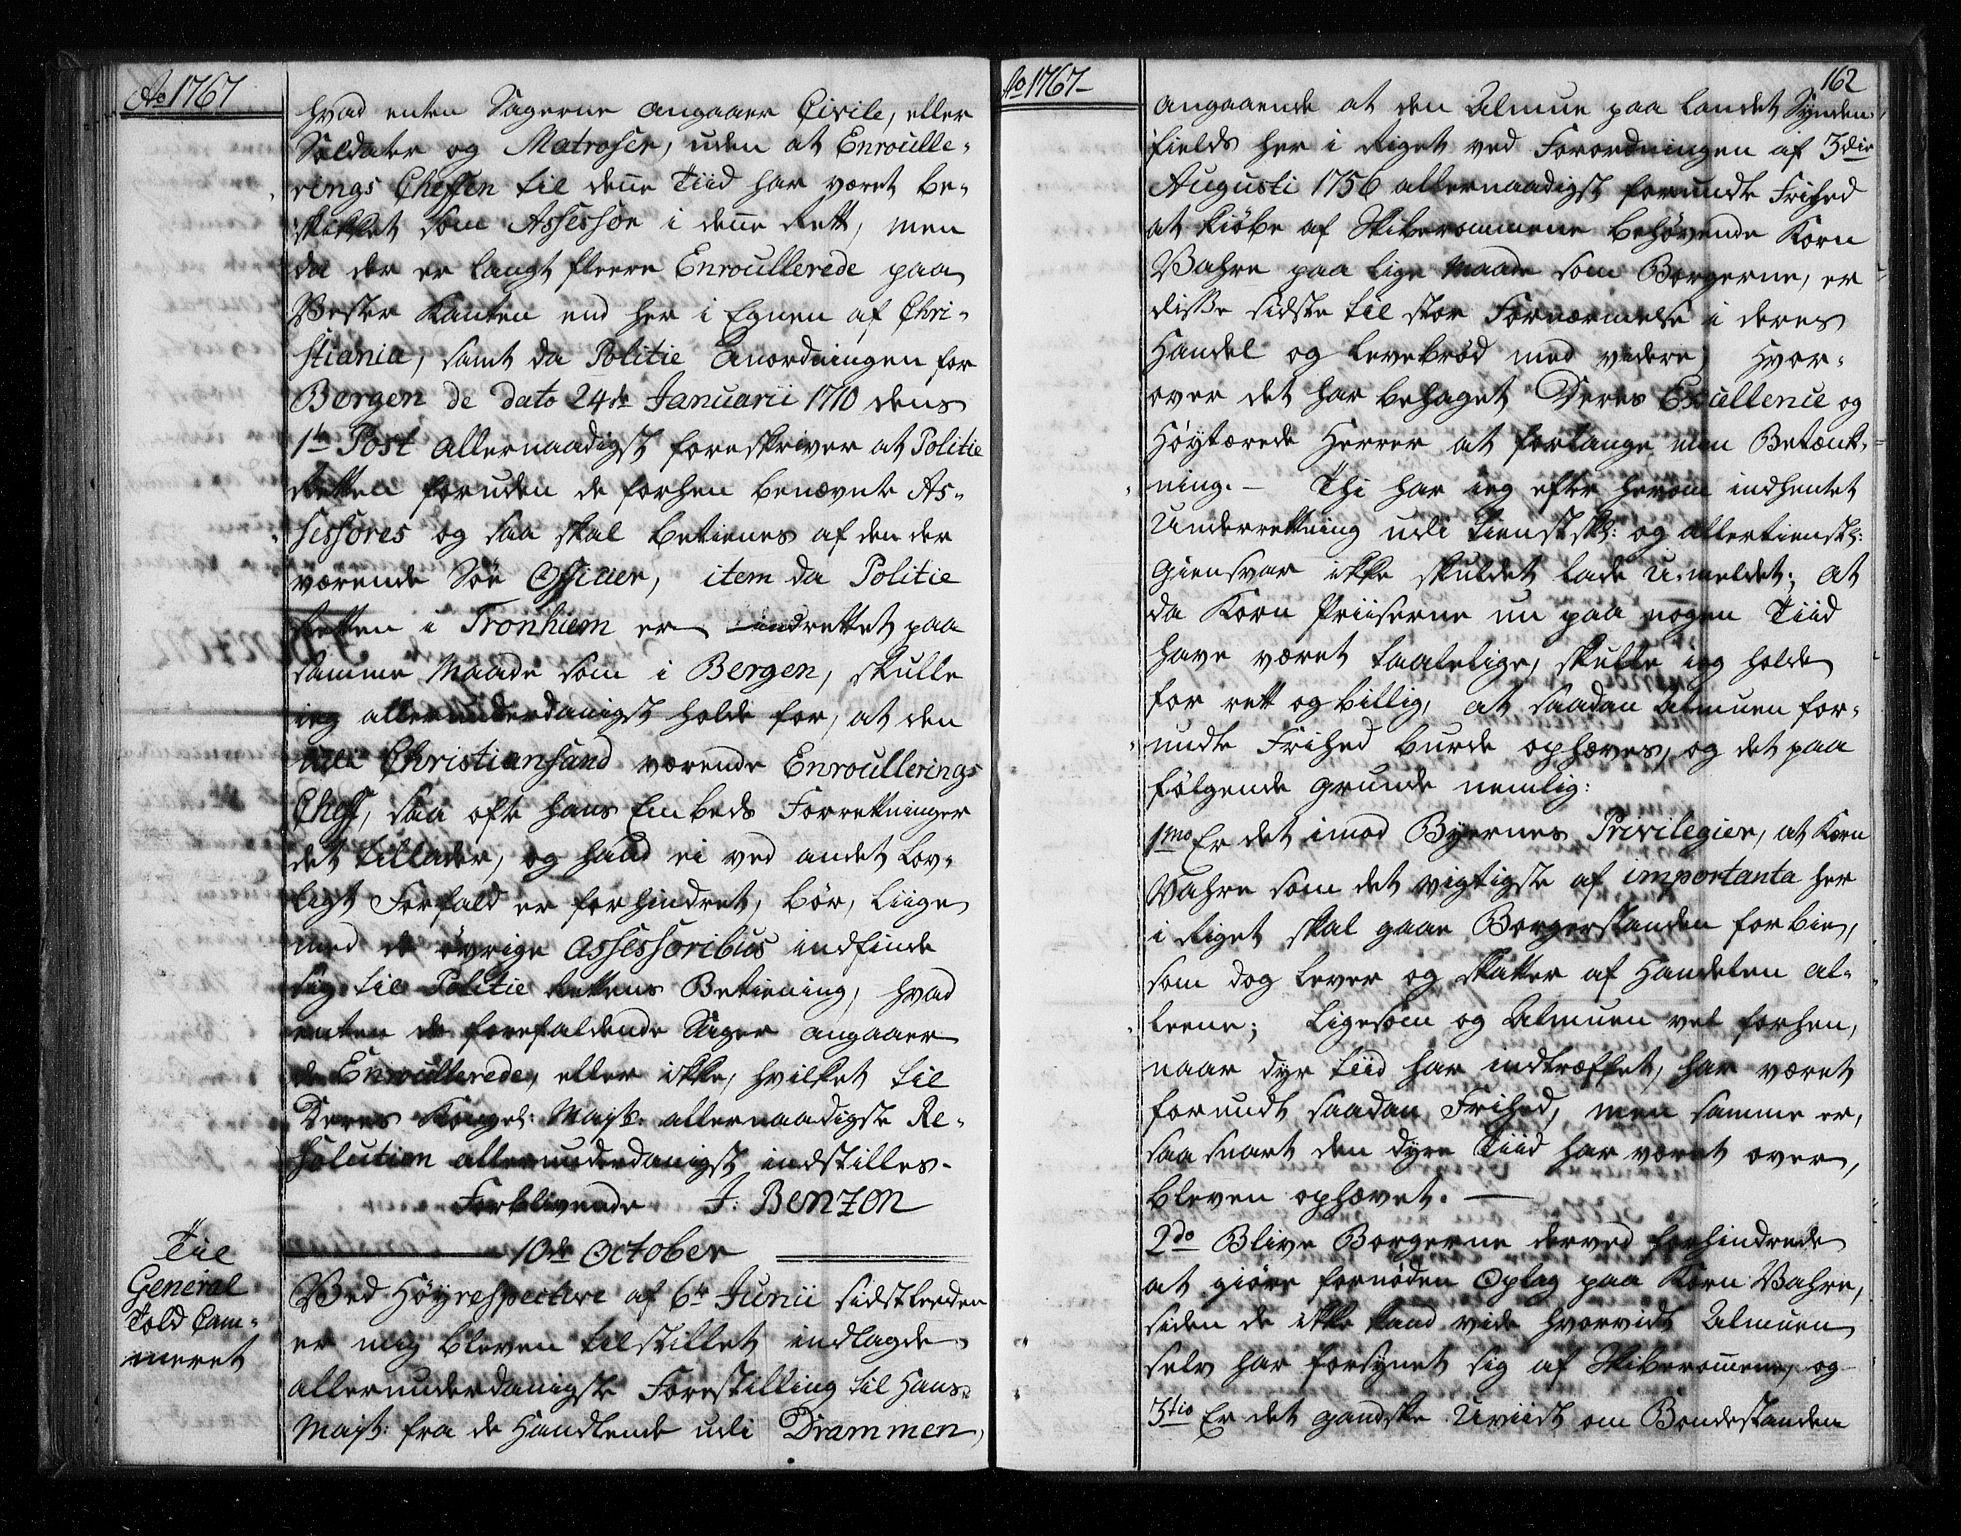 Ao 1767
hvad enten Sagerne angaaer Civile, eller
Soldater og Matroser, uden at Enroulle-
rings Cheffen til denne Tiid har været be-
skikket som Assessor i denne Rett, men
da der er langt fleere Enroullerede paa
Vester Kanten end her i Egnen af Chri-
stiania, samt da Politie Anordningen for
Bergen de dato 24de Januarii 1710 dens
1te Post allernaadigst foreskriver at Politie
Retten foruden de forhen benævnte As-
sessores og saa skal betienes af den der
værende Söe Officier, item da Politie
Retten i Tronhiem er indrettet paa
samme Maade som i Bergen, skulle
ieg allerunderdanigst holde for, at den
udi Christiansand værende Enroullerings
Cheff, saa ofte hans Embeds Forretninger
det tillader, og hand ei ved andet Lov-
ligt Forfald er forhindret, bör, liige
med de övrige Assessoribus indfinde
sig til Politie Rettens Betiening, hvad
enten de forefaldende Sager angaaer
de Enroullerede, eller ikke, hvilket til
Deres Kongel: Majst: allernaadigste Re-
solution allerunderdanigst indstilles.
Forblivende J. Benzon
10de October
Til
General
Told Cam-
meret
Ved Höyrespective af 6te Junii sidstleeden
er mig bleven tilstillet indlagde
allerunderdanigste Forestilling til Hans
Majst: fra de Handlende udi Drammen,
Ao 1767
162
angaaende at den Almue paa Landet Synden-
fields her i Riget ved Forordningen af 3die
Augusti 1756 allernaadigst forundte Frihed
at kiöbe af Skiberommene behövende Korn
Vahre paa lige Maade som Borgerne, er
disse sidste til stor Fornærmelse i deres
Handel og Levebröd med videre; Hvor-
over det har behaget Deres Excellence og
Höytærede Herrer at forlange min Betænk-
ning. - Thi har ieg efter herom indhentet
Underretning udi tienstsk: og allertienstsk:
Giensvar ikke skuldet lade u-meldet; at
da Korn Priiserne nu paa nogen Tiid
have været taalelige, skulle ieg holde
for rett og billig, at saadan Almuen for-
undte Frihed burde ophæves, og det paa
fölgende grunde nemlig:
1mo Er det imod Byernes Privilegier, at Korn
Vahre som det vigtigste af importanta her
i Riget skal gaae Borgerstanden forbie,
som dog lever og skatter af Handelen al-
leene; Ligesom og Almuen vel forhen,
naar dyr Tiid har indtræffet, har været
forundt saadan Frihed, men samme er,
saa snart den dyre Tiid har været over,
bleven ophævet.
2do Blive Borgerne derved forhindrede
at giöre fornöden Oplag paa Korn Vahre,
siden de ikke kand vide hvorvidt Almuen
selv har forsynet sig af Skiberommene, og
3tio Er det gandske Uviist om Bondestanden